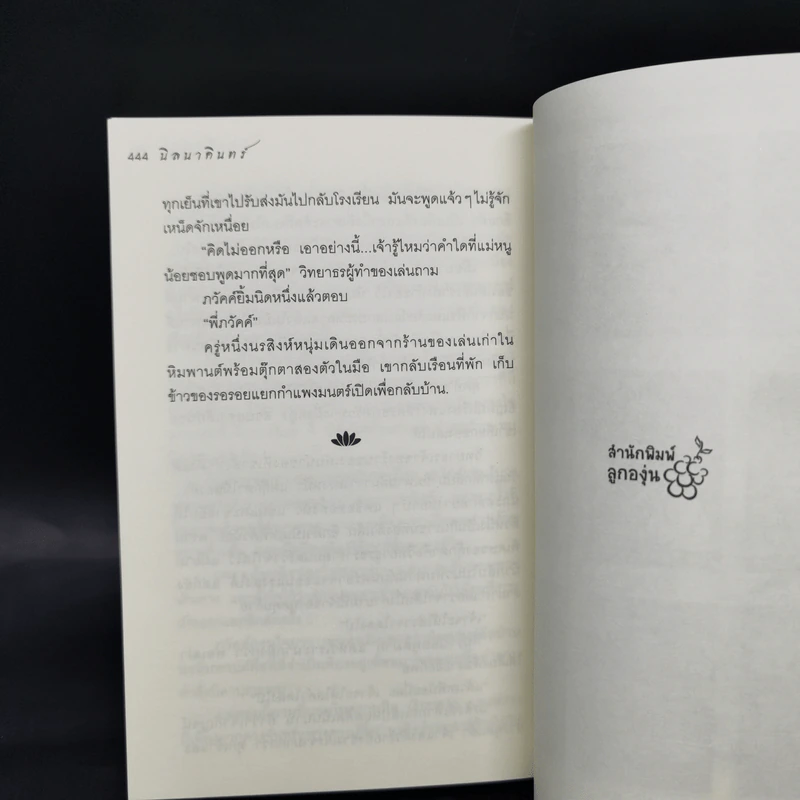 444 นิลนาคินทร์
ทุกเย็นที่เขาไปรับส่งมันไปกลับโรงเรียน มันจะพูดแจ้วๆไม่รู้จัก
เหน็ดจักเหนื่อย
"คิดไม่ออกหรือ เอาอย่างนี้...เจ้ารู้ไหมว่าคำใดที่แม่หนู
น้อยชอบพูดมากที่สุด" วิทยาธรผู้ทำของเล่นถาม
ภวัคค์ยิ้มนิดหนึ่งแล้วตอบ
"พี่ภวัคค์"
ครู่หนึ่งนรสิงห์หนุ่มเดินออกจากร้านของเล่นเก่าใน
หิมพานต์พร้อมตุ๊กตาสองตัวในมือ เขากลับเรือนที่พัก เก็บ
ข้าวของรอรอยแยกกำแพงมนตร์เปิดเพื่อกลับบ้าน.
สำนักพิมพ์
ลูกองุ่น